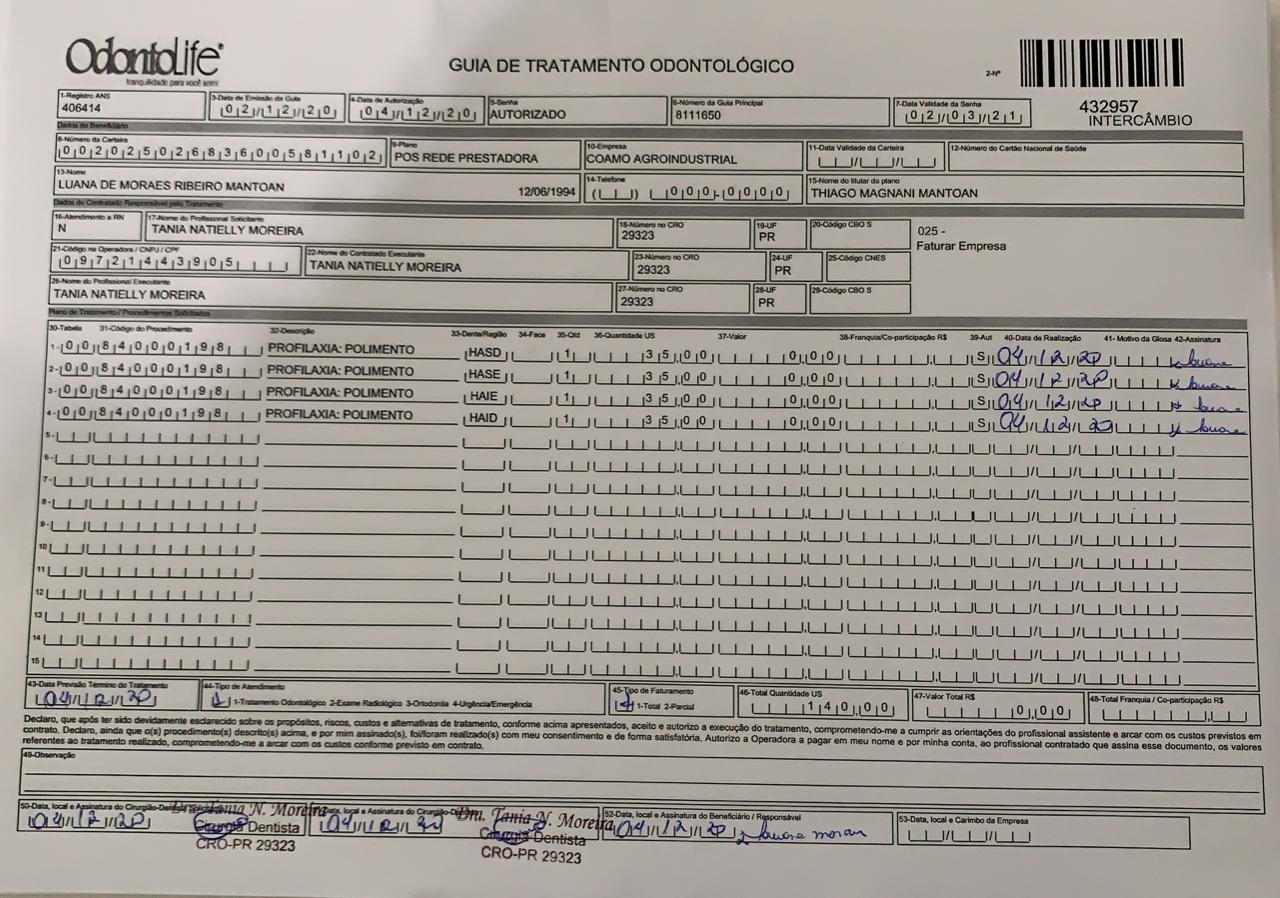 OdontoLife
tranquilidade para você sorrir
GUIA DE TRATAMENTO ODONTOLÓGICO
2-Nº
432957
INTERCÂMBIO
1-Registro ANS
406414
3-Data de Emissão da Guia
02/12/20
4-Data de Autorização
04/12/20
5-Senha
AUTORIZADO
6-Número da Guia Principal
8111650
7-Data Validade da Senha
02/03/21
Dados do Beneficiário
8-Número da Carteira
00202502683600581102
9-Plano
POS REDE PRESTADORA
10-Empresa
COAMO AGROINDUSTRIAL
11-Data Validade da Carteira
12-Número do Cartão Nacional de Saúde
13-Nome
LUANA DE MORAES RIBEIRO MANTOAN 12/06/1994
14-Telefone
( ) 000-0000
15-Nome do titular do plano
THIAGO MAGNANI MANTOAN
Dados do Contratado Responsável pelo Tratamento
16-Atendimento a RN
N
17-Nome do Profissional Solicitante
TANIA NATIELLY MOREIRA
18-Número no CRO
29323
19-UF
PR
20-Código CBO S
025 -
Faturar Empresa
21-Código na Operadora / CNPJ / CPF
09721443905
22-Nome do Contratado Executante
TANIA NATIELLY MOREIRA
23-Número no CRO
29323
24-UF
PR
25-Código CNES
26-Nome do Profissional Executante
TANIA NATIELLY MOREIRA
27-Número no CRO
29323
28-UF
PR
29-Código CBO S
Plano de Tratamento / Procedimentos Solicitados
30-Tabela 31-Código do Procedimento 32-Descrição 33-Dente/Região 34-Face 35-Qtd 36-Quantidade US 37-Valor 38-Franquia/Co-participação R$ 39-Aut 40-Data de Realização 41- Motivo da Glosa 42-Assinatura
1- 00 84000198 PROFILAXIA: POLIMENTO HASD 1 35,00 0,00 S 04/12/20
2- 00 84000198 PROFILAXIA: POLIMENTO HASE 1 35,00 0,00 S 04/12/20
3- 00 84000198 PROFILAXIA: POLIMENTO HAIE 1 35,00 0,00 S 04/12/20
4- 00 84000198 PROFILAXIA: POLIMENTO HAID 1 35,00 0,00 S 04/12/20
5-
6-
7-
8-
9-
10
11
12
13
14
15
43-Data Previsão Término do Tratamento
04/12/20
44-Tipo de Atendimento
1 1-Tratamento Odontológico 2-Exame Radiológico 3-Ortodontia 4-Urgência/Emergência
45-Tipo de Faturamento
1-Total 2-Parcial
46-Total Quantidade US
140,00
47-Valor Total R$
0,00
48-Total Franquia / Co-participação R$
Declaro, que após ter sido devidamente esclarecido sobre os propósitos, riscos, custos e alternativas de tratamento, conforme acima apresentados, aceito e autorizo a execução do tratamento, comprometendo-me a cumprir as orientações do profissional assistente e arcar com os custos previstos em
contrato. Declaro, ainda que o(s) procedimento(s) descrito(s) acima, e por mim assinado(s), foi/foram realizado(s) com meu consentimento e de forma satisfatória. Autorizo a Operadora a pagar em meu nome e por minha conta, ao profissional contratado que assina esse documento, os valores
referentes ao tratamento realizado, comprometendo-me a arcar com os custos conforme previsto em contrato.
49-Observação
50-Data, local e Assinatura do Cirurgião-Dentista
04/12/20
Dra. Tania N. Moreira
Cirurgiã Dentista
CRO-PR 29323
Data, local e Assinatura do Cirurgião-D
04/12/20
Dra. Tania N. Moreira
Cirurgiã Dentista
CRO-PR 29323
52-Data, local e Assinatura do Beneficiário / Responsável
04/12/20
53-Data, local e Carimbo da Empresa